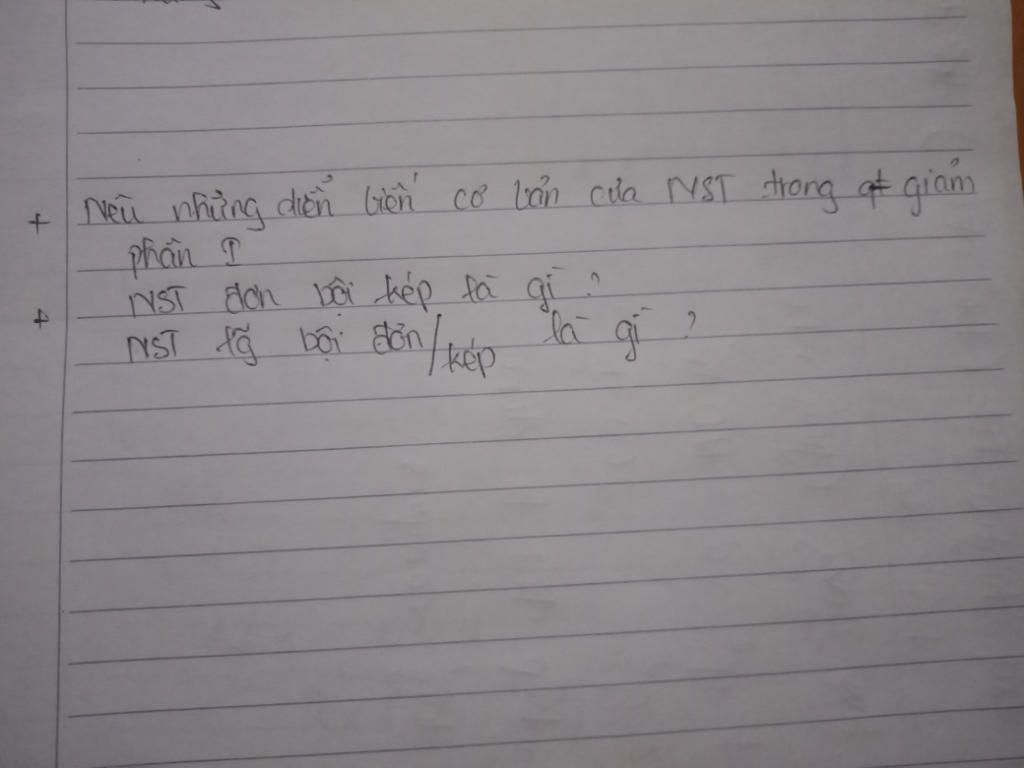 + Nêu những diễn biến cơ bản của NST trong giảm
phân I
+ NST đơn bội kép là gì?
NST lg bội đơn/kép là gì?